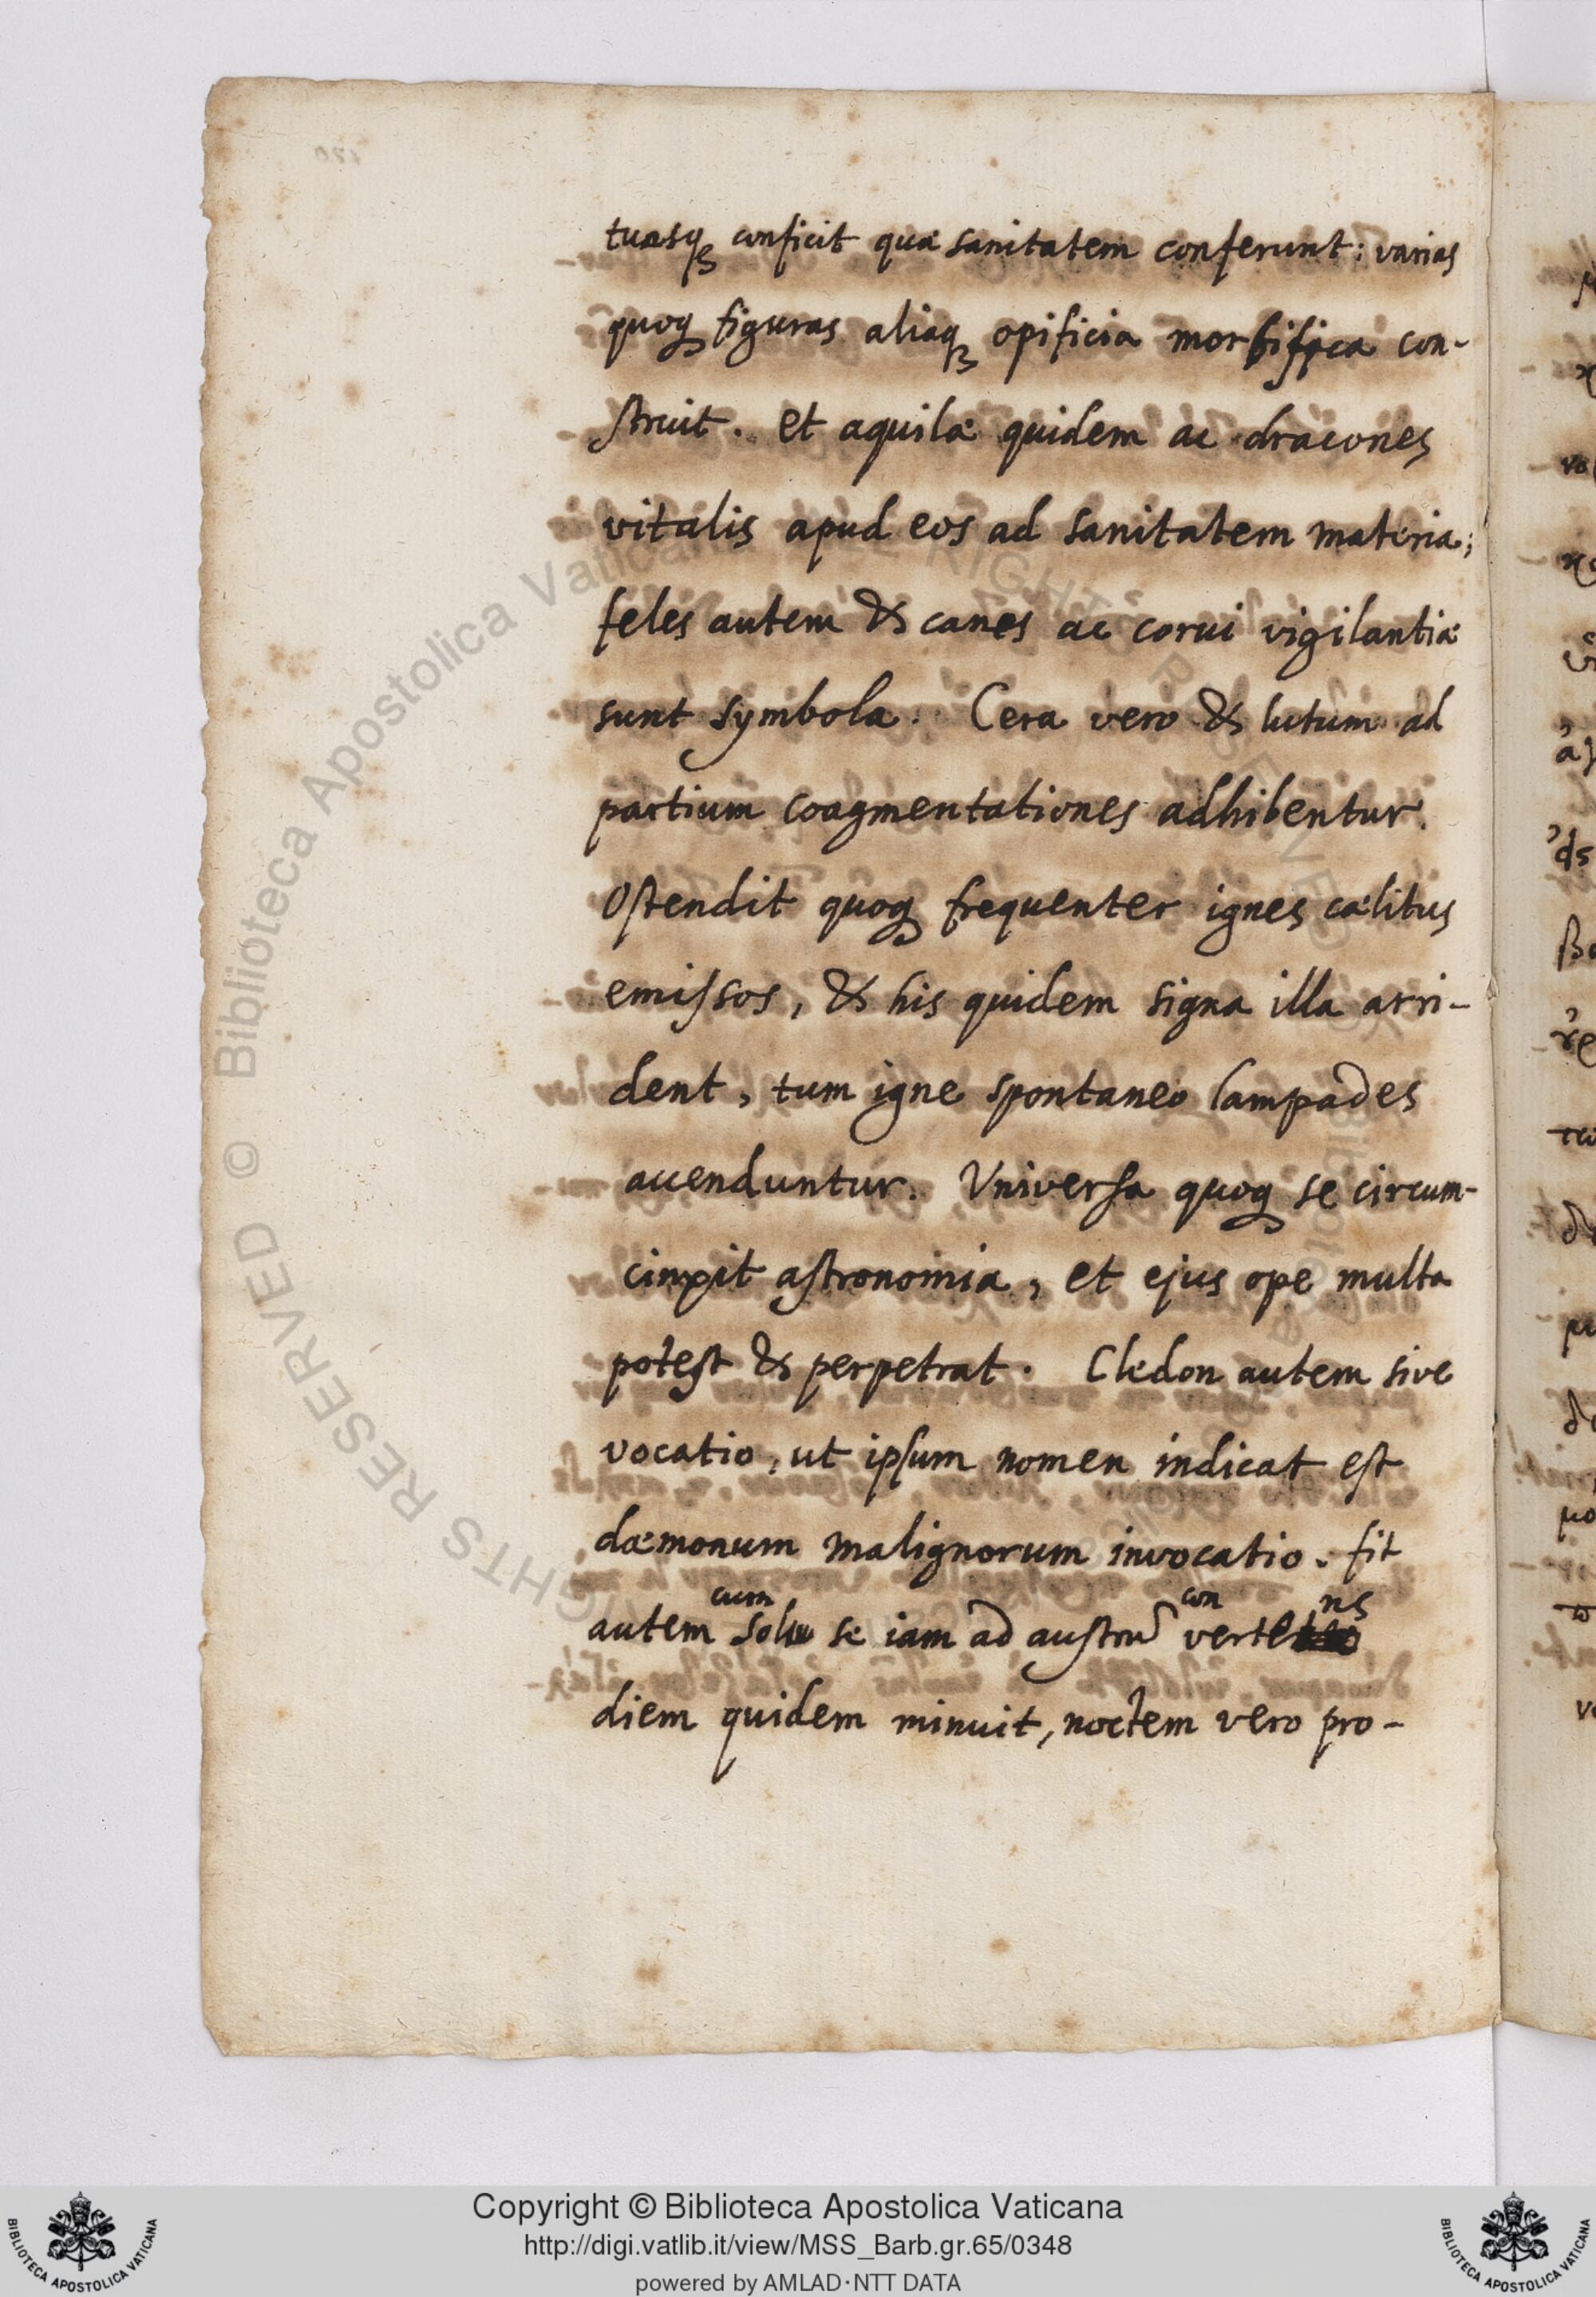 tuasq₃ conficit quæ sanitatem conferunt: varias
quoq₃ figuras aliaq₃ opificia morbifica con-
ſtruit. et aquilæ quidem ac dracones
vitalis apud eos ad sanitatem materia;
feles autem & canes ac corui vigilantiæ
sunt symbola. Cera vero & lutum ad
partium coagmentationes adhibentur.
Oſtendit quoq₃ frequenter ignes cælitus
emiſsos, & his quidem signa illa arri-
dent, tum igne spontaneo lampades
accenduntur. Vniverſa quoq₃ se circum-
cinxit aſtronomia, et ejus ope multa
poteſt & perpetrat. Cledon autem sive
vocatio, ut ipſum nomen indicat eſt
dæmonum malignorum invocatio. fit
cum con ns
autem Sol se iam ad auſtrũ verte
diem quidem minuit, noctem vero pro-
Copyright © Biblioteca Apostolica Vaticana
http://digi.vatlib.it/view/MSS_Barb.gr.65/0348
powered by AMLAD·NTT DATA
BIBLIOTECA APOSTOLICA VATICANA
BIBLIOTECA APOSTOLICA VATICANA